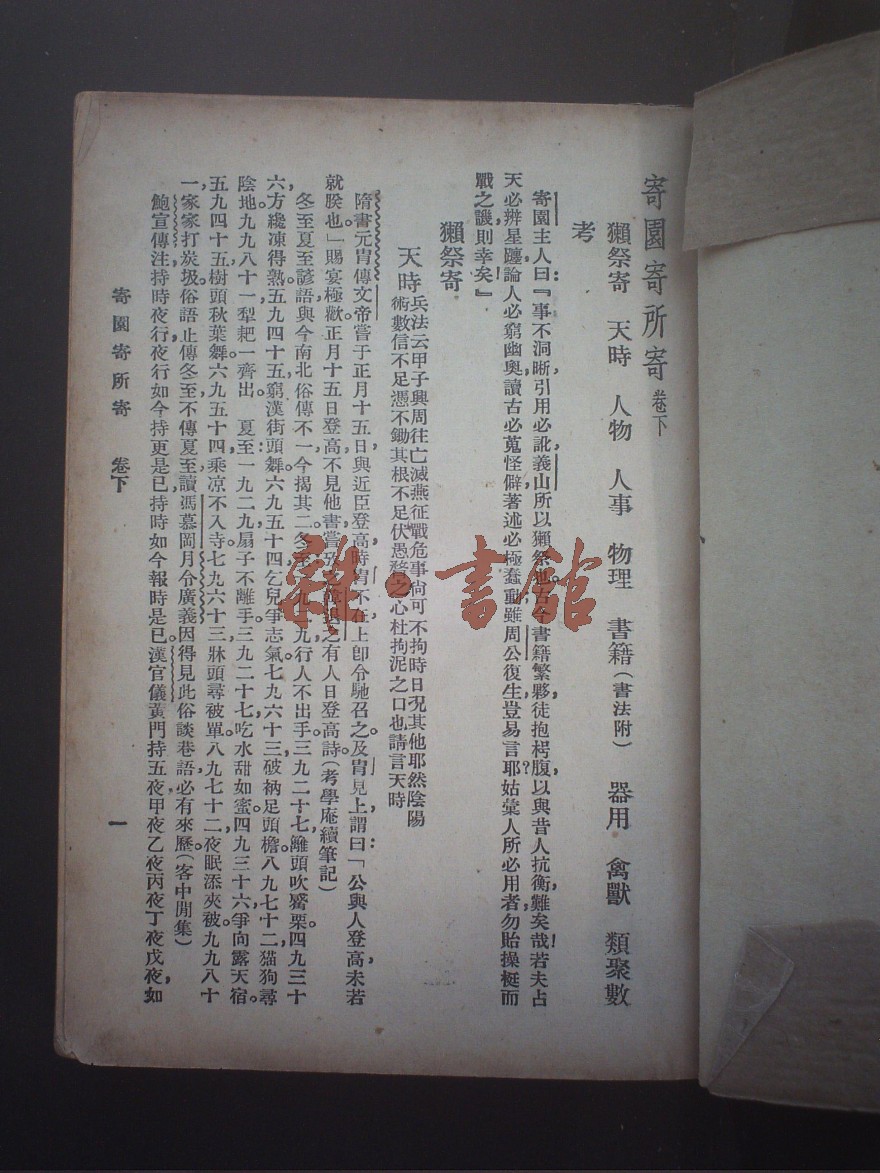 寄園寄所寄 卷下
獺祭寄 天時 人物 人事 物理 書籍(書法附) 器用 禽獸 類聚數
考
寄園主人曰:『事不洞晰,引用必訛,義山所以獺祭也。古今書籍繁夥,徒抱枵腹以與昔人抗衡,難矣哉!若夫占
天必辨星躔,論人必窮幽奧,讀古必蒐怪僻,著述必極蠢動,雖周公復生,豈易言耶?姑彙人所必用者,勿貽操梃而
戰之譏,則幸矣!』
獺祭寄
天時 兵法云甲子興周往亡滅燕征戰危事尙可不拘時日况其他耶然陰陽
術數信不足憑不鋤其根不足伏愚瞀之心杜拘泥之口也請言天時
隋書元胄傳文帝嘗于正月十五日,與近臣登高,時胄不在,上卽令馳召之。及胄見,上謂曰:「公與人登高,未若
就朕也。」賜宴極歡。正月十五日登高,不見他書,嘗攷之,韓退之有人日登高詩。(考學庵續筆記)
冬至夏至諺語,與今南北俗傳不一,今揭其二。冬至:一九二九行人不出手,三九二十七,籬頭吹觱栗。四九三十
六,方纔凍得熟。五九四十五,窮漢街頭舞。六九五十四,乞兒爭志氣。七九六十三,破衲足頭擔。八九七十二,猫狗尋
陰地。九九八十一,犁耙一齊出。 夏至:一九二九,扇子不離手。三九二十七,吃水甜如蜜。四九三十六,爭向露天宿。
五九四十五,樹頭秋葉舞。六九五十四,乘凉不入寺。七九六十三,牀頭尋被單。八九七十二,夜眠添夾被。九九八十
一,家家打炭圾。俗語止傳冬至,不傳夏至,讀馮慕岡月令廣義,因得見此俗談巷語,必有來歷。(客中閒集)
鮑宣傳注,持時夜行,夜行如今持更是已,持時如今報時是已。漢官儀黃門持五夜,甲夜乙夜丙夜丁夜戊夜,如
寄園寄所寄 卷下
一
雜·書館